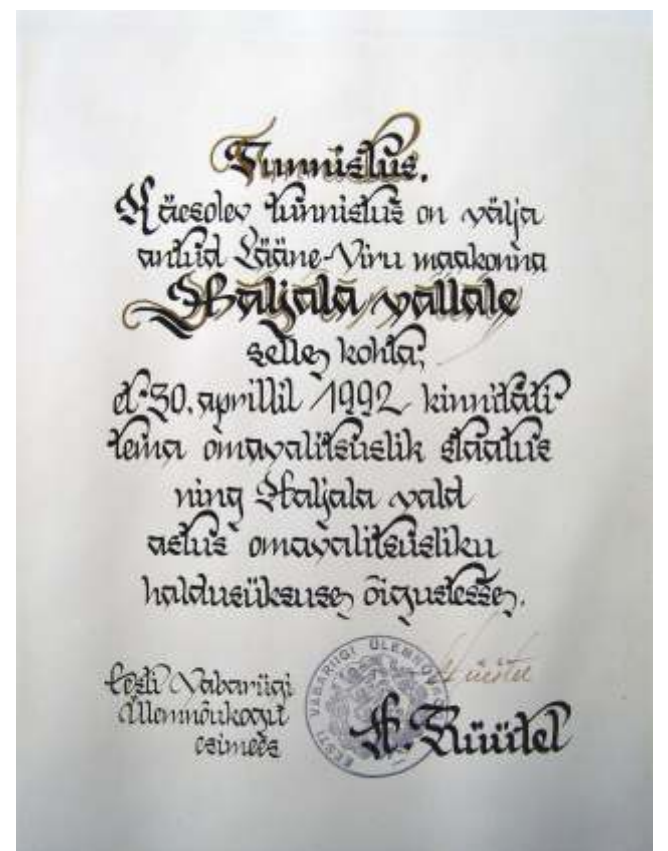 Tunnistus.
Käesolev tunnistus on välja
antud Lääne-Viru maakonna
Haljala vallale
selle kohta,
et 30. aprillil 1992 kinnitati
tema omavalitsuslik staatus
ning Haljala vald
astus omavalitsusliku
haldusüksuse õigustesse.
Eesti Vabariigi
Ülemnõukogu
esimees
EESTI VABARIIGI ÜLEMNÕUKOGU
A. Rüütel